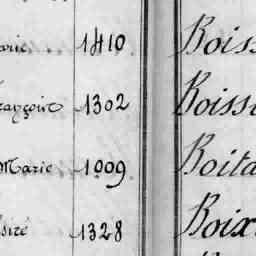 arie 1410 Boiss
rançoise 1302 Boissi
Marie 1009 Boita
siré 1328 Boix